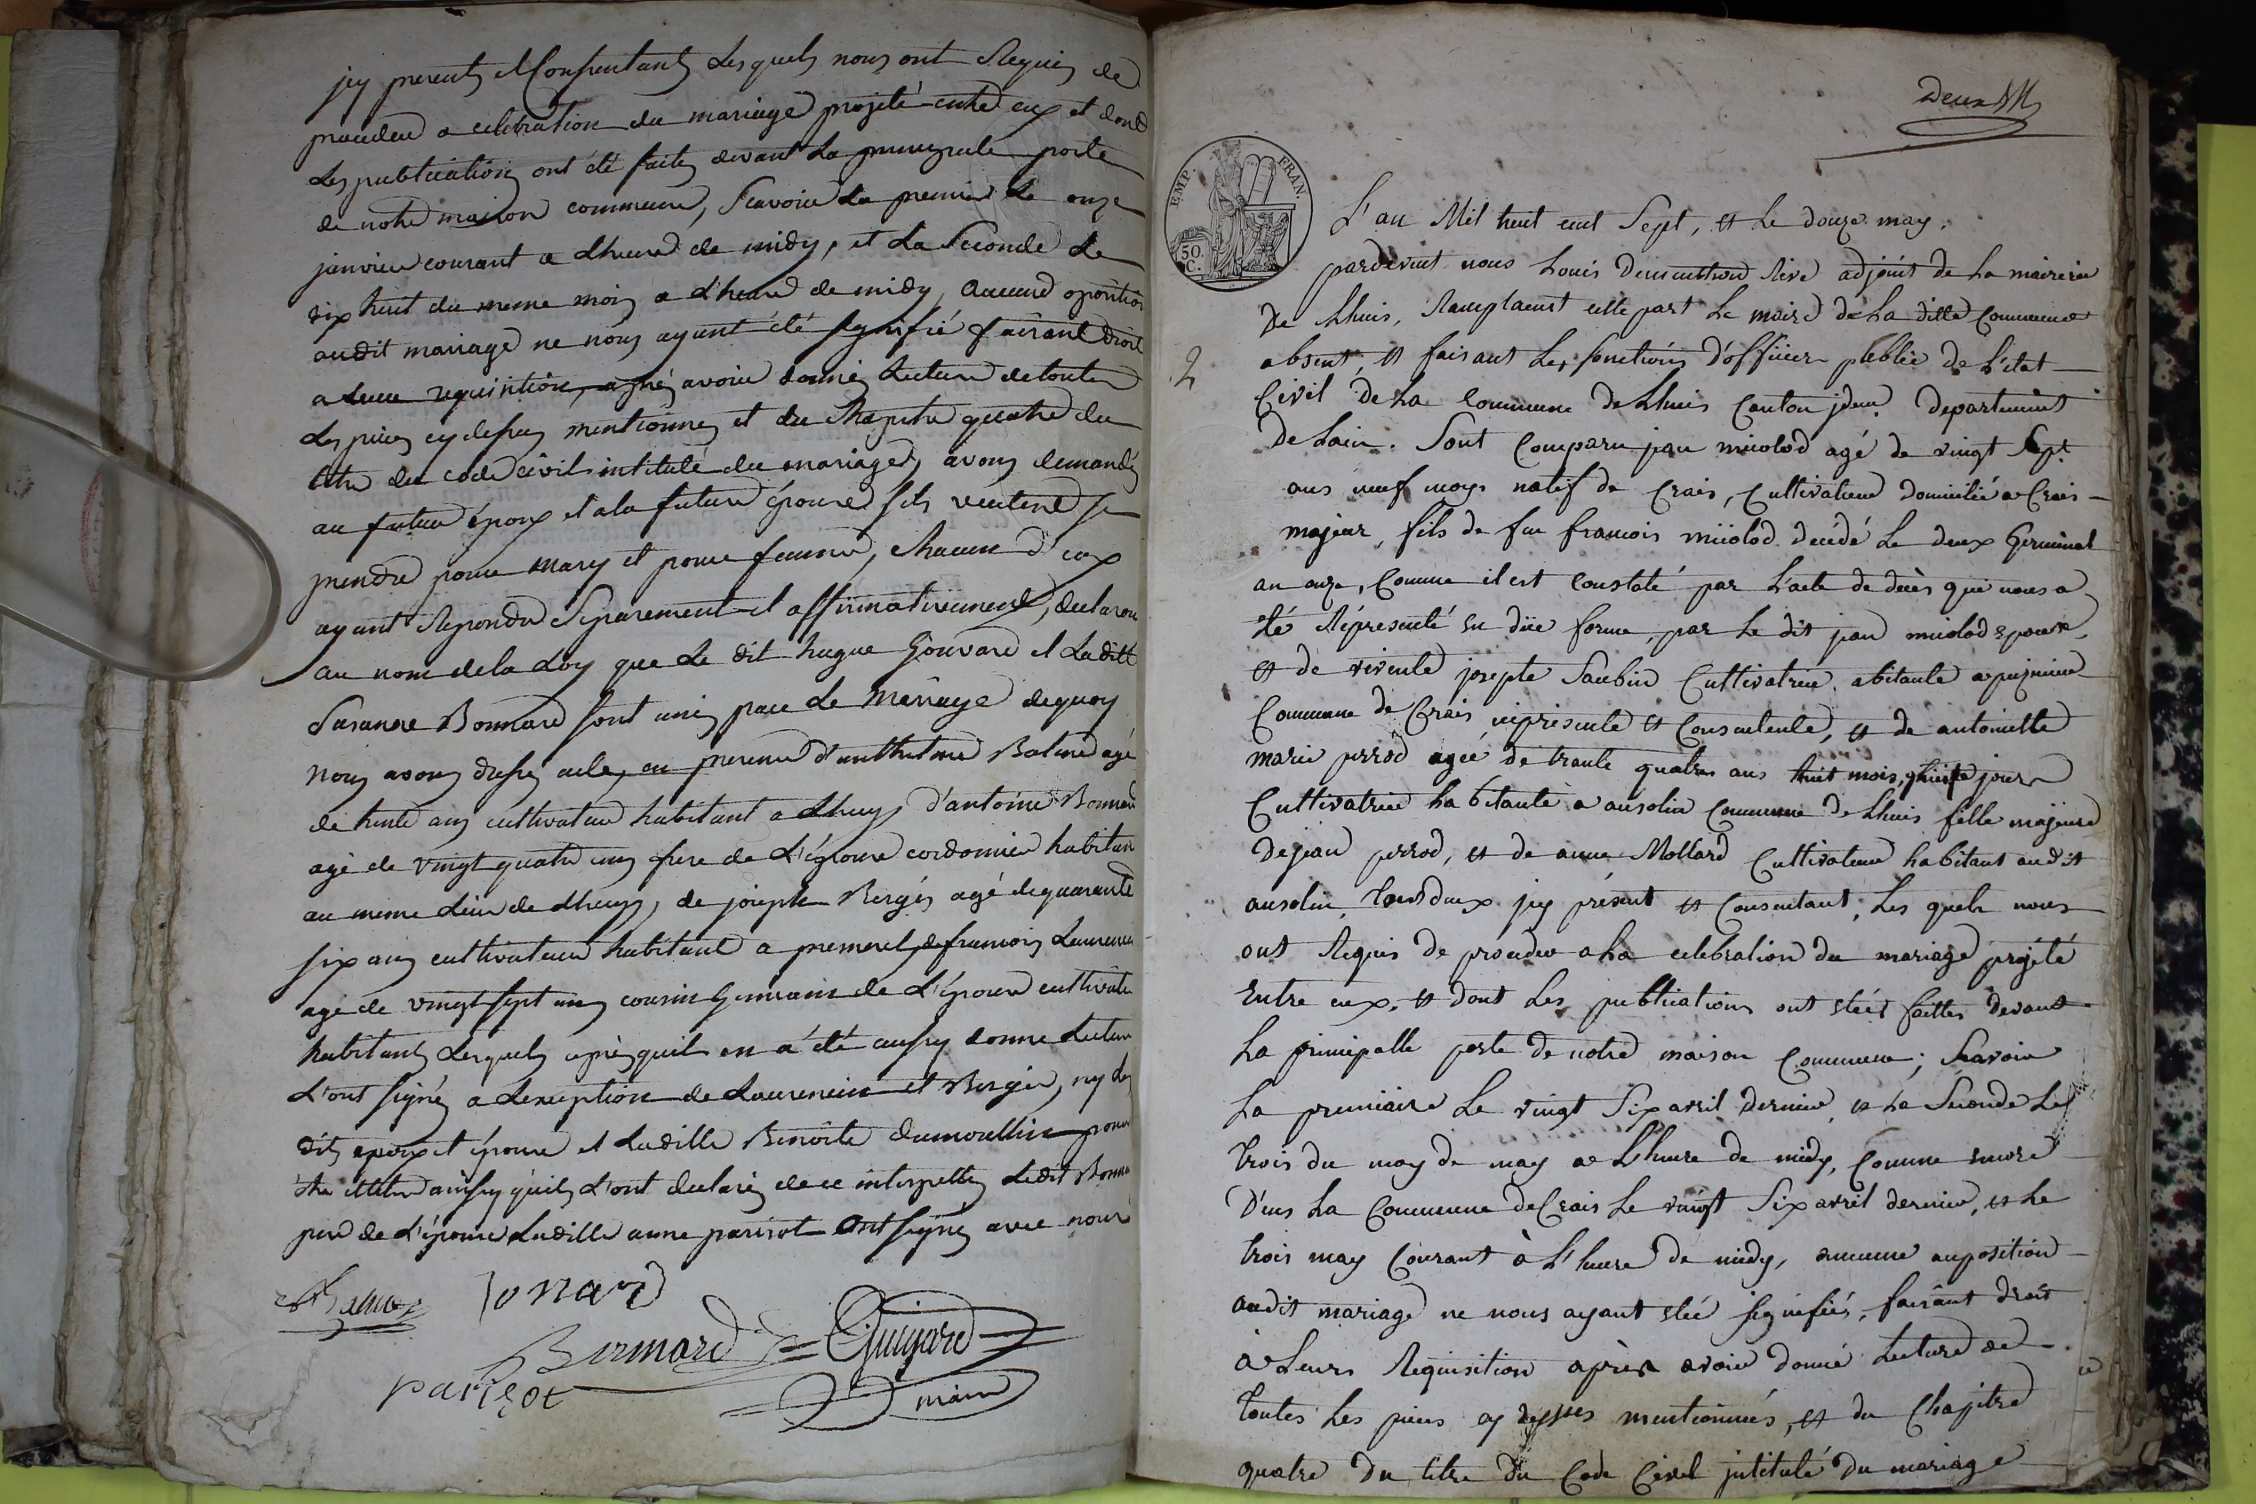 jcy presents et Consentants Lesquels nous ont Requis de
proceder a celebration du mariage projeté entre eux et dont
Les publications ont été faites devant La principale porte
de notre maison commune, Scavoir La premiere Le onze
janvier courant a Lheure de midy, et La Seconde Le
dix huit du meme mois a L'heure de midy, aucune oposition
audit mariage ne nous ayant été signifié faisant droit
a Leur requisition, après avoir donnés Lecture de toutes
Les pieces cy dessus mentionnés et du Chapitre quatre du
titre du code civil intitulé du mariage, avons demandés
au futur époux et a la future épouse s'ils veulent se
prendre pour mary et pour femme, chacun d'eux
ayant Repondu Séparement et affirmativement, declarons
au nom de la Loy que Le dit hugue Gouvard et Ladite
Susanne Bonnard sont unis par Le Mariage de quoy
Nous avons dressés acte, en presence d'anthelme Balme agé
de trente ans cultivateur habitant a Lhuys d'antoine Bonnard
agé de vingt quatre ans frere de L'épouse cordonnier habitan
au meme Lieu de Lhuys, de joseph Bergés agé de quarante
six ans cultivateur habitant a de francois Laurencin
agé de vingt sept ans cousin Germain de L'épouse cultivate
habitant Lesquels après quil en a été aussy donné Lecture
L'ont signés a L'exeption de Laurencin et Bergér, ny Les
dits époux et épouse et Ladille Benoite dumoullin pour
être illetré ainsy quils L'ont declarés de ce interpellés Ledit Bonna
pere de L'épouse Ladille anne parisot Ont signés avec nous
Balme Bonard
Bonnard Guigard
Parizot maire
Deux
EMP. FRAN.
50. C.
2
L'an Mil huit cent Sept, et Le douze may,
pardevent nous Louis Dumoulhin Rive adjoint de La mairerie
De Lhuis, Ramplacent cette part Le maire de La ditte Commune
absent, et faisant Les fonctions d'officier publice de L'etat
Civil De La Commune De Lhuis Canton jdem Departement
De Lain. Sont Comparu jean miolod agé de vingt Sept
ans neuf moys natif de Crais, Cultivateur domicilié a Crais
majeur, fils de feu francois miolod décédé Le deux Germinal
an onze, Comme il est Constaté par L'acte de decès qui nous a
été Représenté en düe forme, par Le dit jean miolod epoux,
et de vivente josepte Saubin Cultivatrice abitante a
Commune de Crais, icipresente et Consentente, et de antoinette
marie perrod agée de trante quatre ans huit mois, jours
Cultivatrice habitante a ansolin Commune de Lhuis fille majeure
De jean perrod, et de anne Mollard Cultivateur habitant audit
ansolin, Tousdeux jcy présent et Consentant, Les quels nous
ont Requis de proceder a La celebration du mariage projété
Entre eux, et dont Les publications ont étéés faittes devant
La principalle porte de notre maison Commune; Scavoir
La premiaire Le vingt Six avril dernier, et La Seconde Le
trois du moy de may a L'heure de midy, Comme encore
D'ens La Commune de Crais Le vingt Six avril dernier, et Le
trois may Courant à L'heure de midy, aucune auposition
audit mariage ne nous ayant étéé signifiés, faisant droit
à Leurs Requisition après avoir donné Lecture de
toutes Les pieces cy dessus mentionnés, et du Chapitre
quatre Du titre Du Code Civil jntitulé du mariage